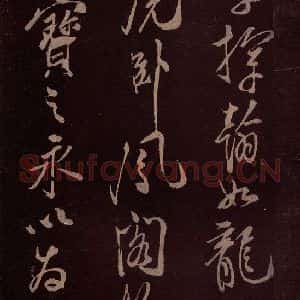 探翰如龍
虎卧鳳閣
寶之永以為
Shufawang.CN